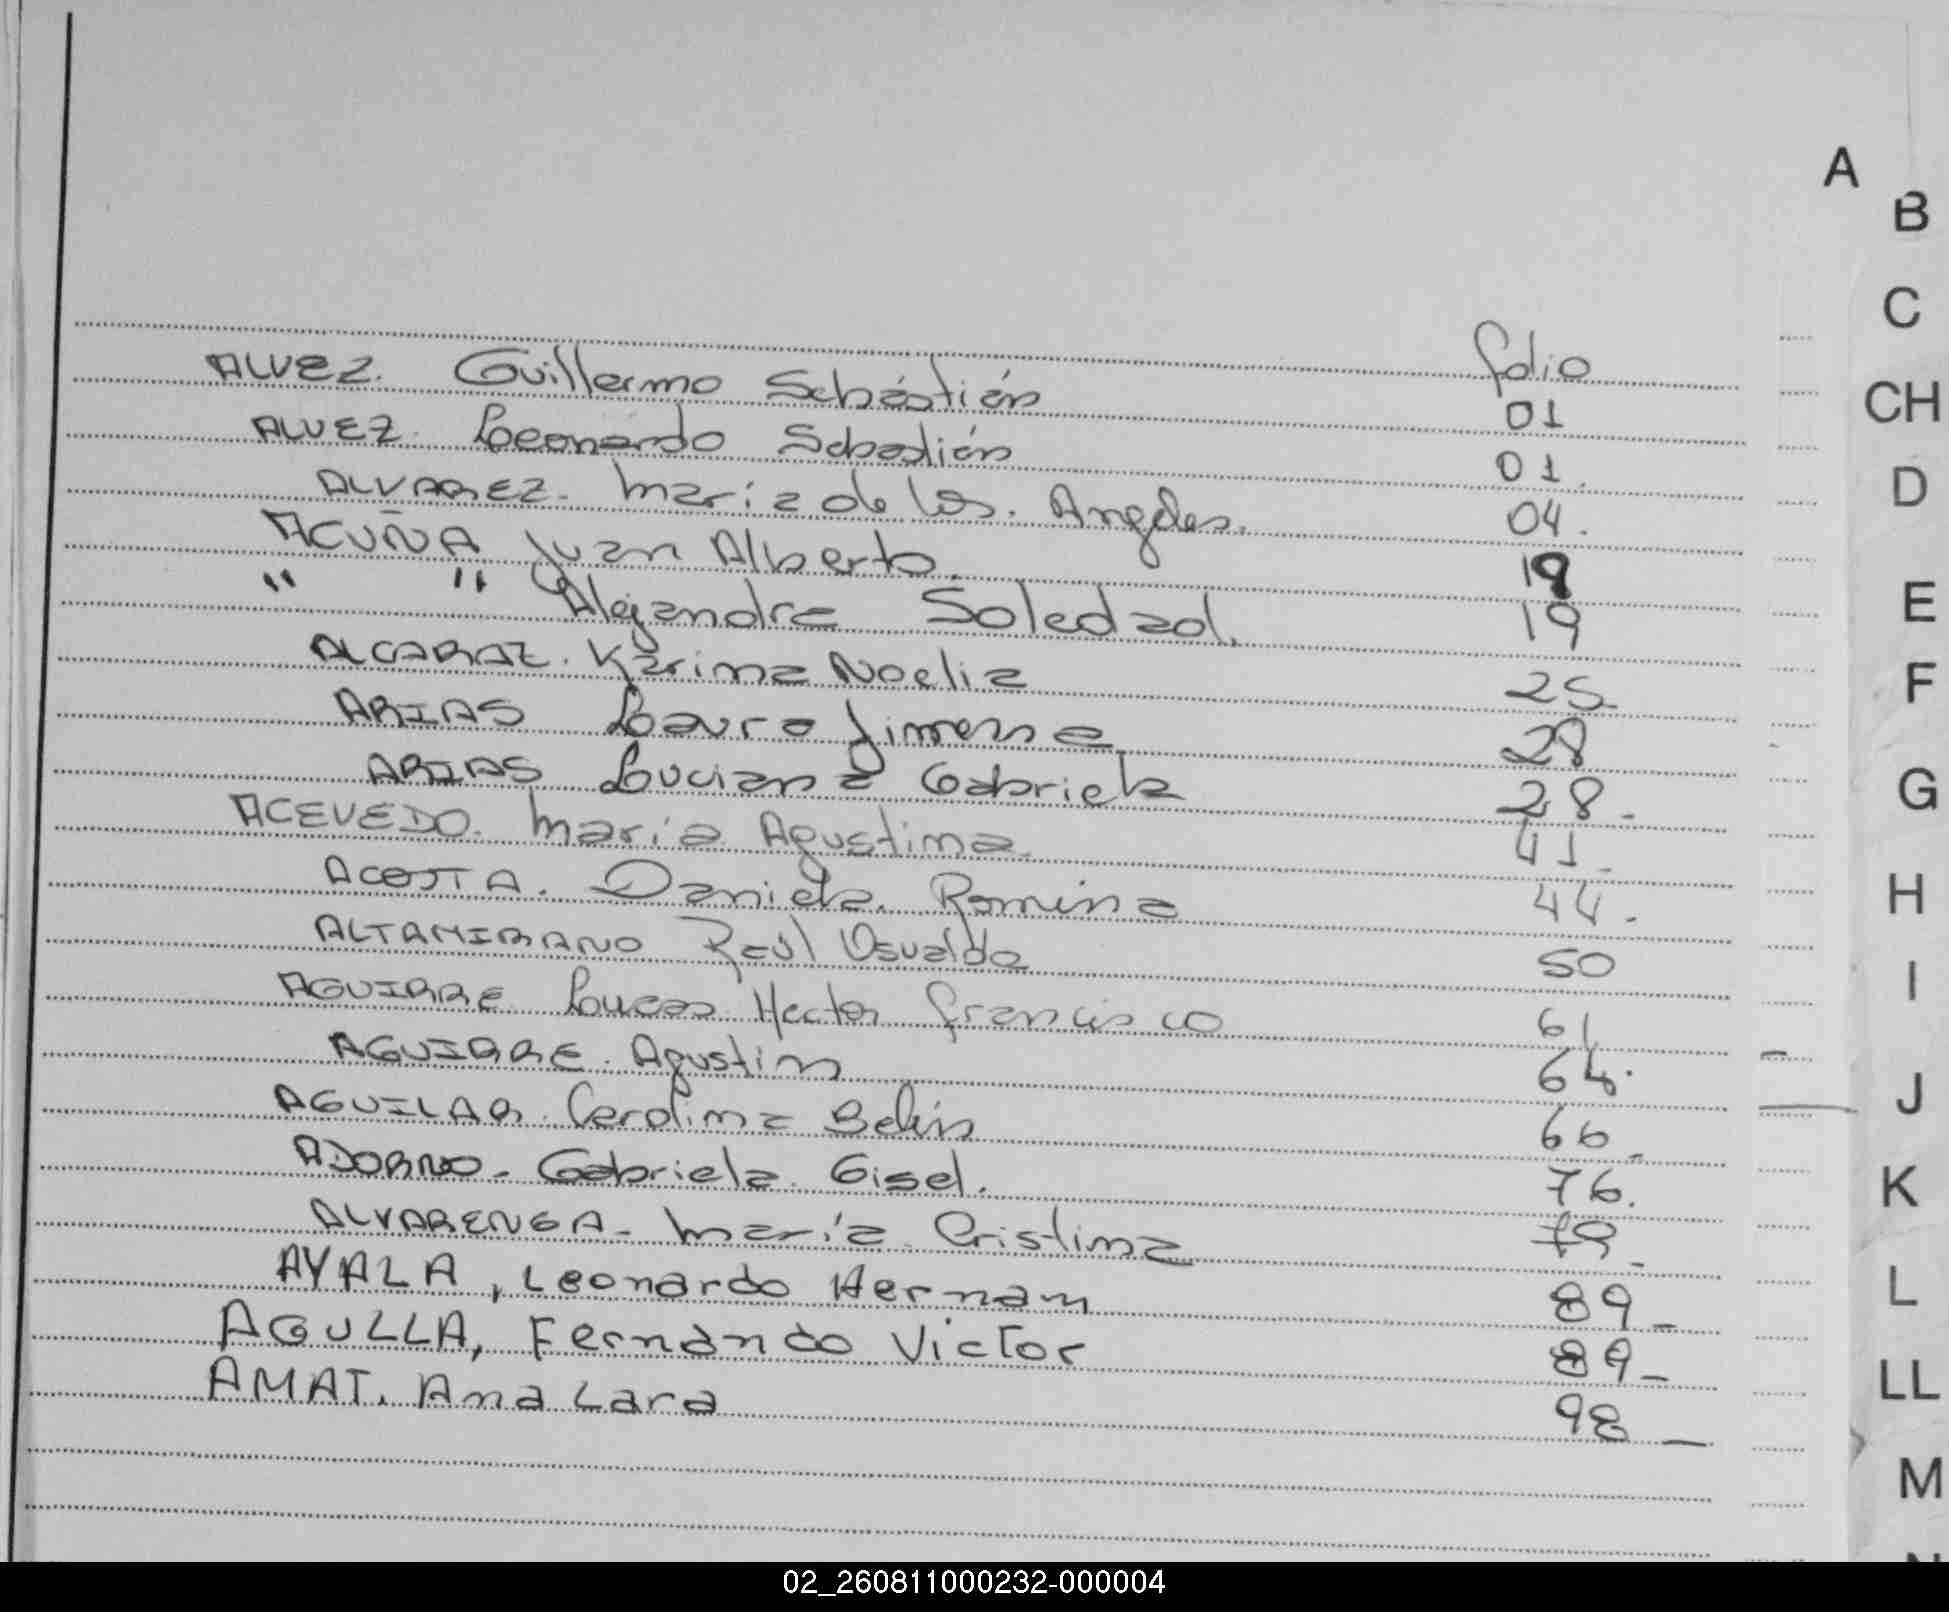 folio
ALVEZ. Guillermo Sebástián 01
ALVEZ. Leonardo Sebastián 01.
ALVAREZ. María de los. Angeles. 04.
ACUÑA Juan Alberto. 19
" " Alejandra Soledad. 19
ALCARAZ. Karina Noelia 25
ARIAS Laura Jimena 28
ARIAS Luciana Gabriela 28.
ACEVEDO. María Agustina. 41
ACOSTA. Daniela. Romina 44.
ALTAMIRANO Raúl Osvaldo 50
AGUIRRE Lucas Hector Francisco 61
AGUIRRE. Agustin 64.
AGUILAR. Carolina Belén 66
ADORNO. Gabriela. Gisel. 76.
ALVARENGA. María Cristina 79
AYALA, Leonardo Hernan 89
AGULLA, Fernando Victor 89
AMAT. Ana Lara 98
A
B
C
CH
D
E
F
G
H
I
J
K
L
LL
M
02_260811000232-000004